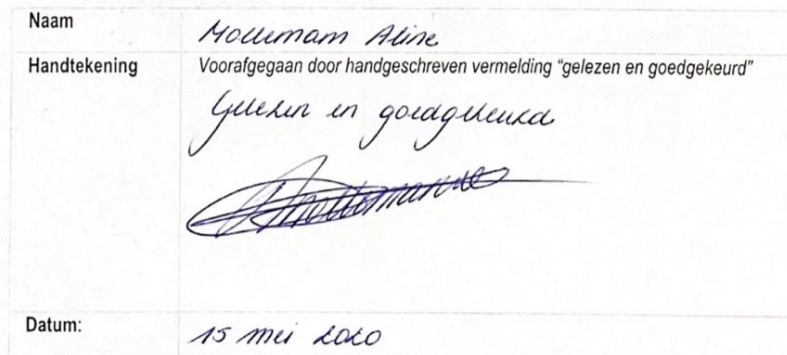 Naam
Mollemam Aline
Handtekening
Voorafgegaan door handgeschreven vermelding "gelezen en goedgekeurd"
Gelezen en goedgekeurd
Datum:
15 mei 2020